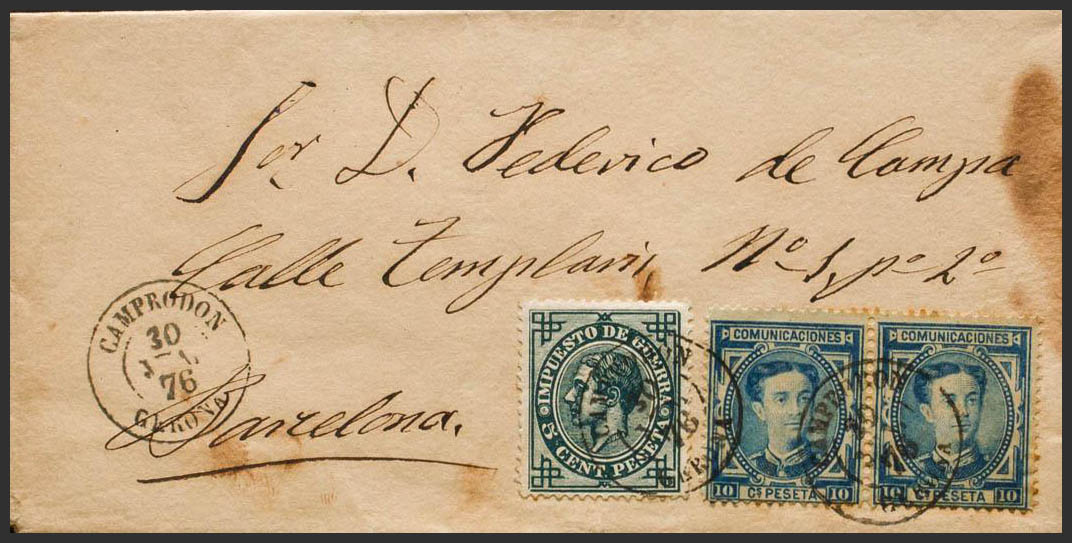 Sor D. Federico de Campa
Calle Templarios, Nº 1, po 2º
Barcelona.
CAMPRODON
30
76
GERONA
IMPUESTO DE GUERRA
5 CENT. PESETA
COMUNICACIONES
10 Cs PESETA 10
COMUNICACIONES
10 Cs PESETA 10